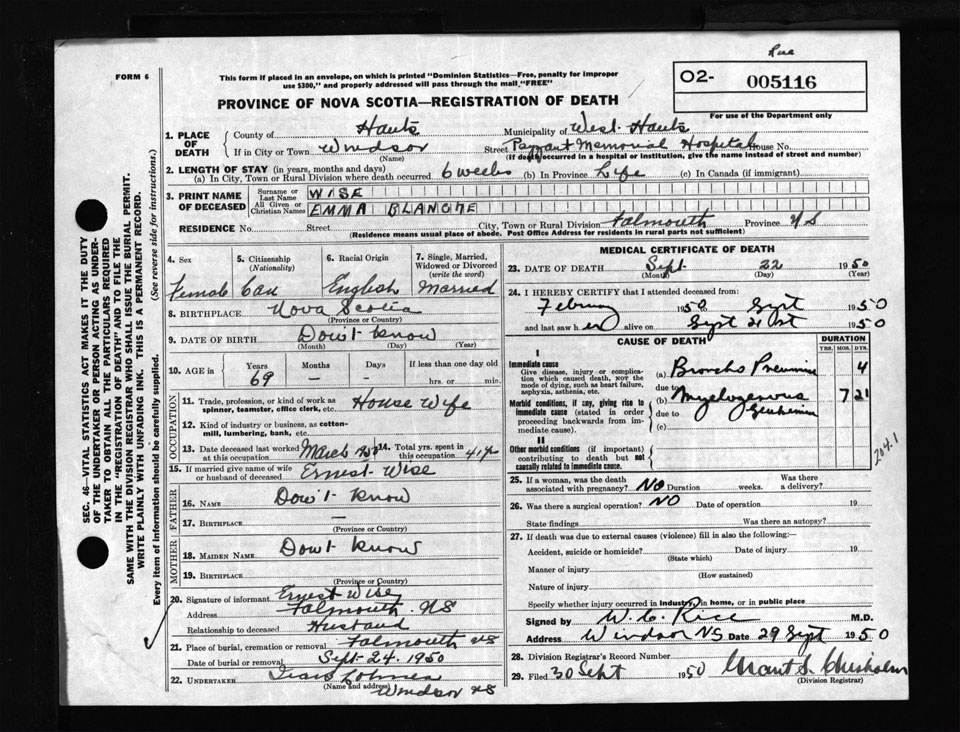 Rec
FORM 6
This form if placed in an envelope, on which is printed "Dominion Statistics—Free, penalty for improper
use $300," and properly addressed will pass through the mail "FREE"
O2- 005116
For use of the Department only
PROVINCE OF NOVA SCOTIA—REGISTRATION OF DEATH
SEC. 46—VITAL STATISTICS ACT MAKES IT THE DUTY
OF THE UNDERTAKER OR PERSON ACTING AS UNDER-
TAKER TO OBTAIN ALL THE PARTICULARS REQUIRED
IN THE "REGISTRATION OF DEATH" AND TO FILE THE
SAME WITH THE DIVISION REGISTRAR WHO SHALL ISSUE THE BURIAL PERMIT.
WRITE PLAINLY WITH UNFADING INK. THIS IS A PERMANENT RECORD.
Every item of information should be carefully supplied. (See reverse side for instructions.)
1. PLACE OF DEATH
County of Hants Municipality of West Hants
If in City or Town Windsor Street Payzant Memorial Hospital House No.
(Name) (If death occurred in a hospital or institution, give the name instead of street and number)
2. LENGTH OF STAY (in years, months and days)
(a) In City, Town or Rural Division where death occurred. 6 weeks (b) In Province Life (c) In Canada (if immigrant)
3. PRINT NAME OF DECEASED
Surname or Last Name WISE
All Given or Christian Names EMMA BLANCHE
RESIDENCE No. Street City, Town or Rural Division Falmouth Province NS
(Residence means usual place of abode. Post Office Address for residents in rural parts not sufficient)
4. Sex 5. Citizenship (Nationality) 6. Racial Origin 7. Single, Married, Widowed or Divorced (write the word)
Female Can English Married
8. BIRTHPLACE Nova Scotia
(Province or Country)
9. DATE OF BIRTH Don't know
(Month) (Day) (Year)
10. AGE in Years Months Days If less than one day old
69 — — hrs. or min.
OCCUPATION
11. Trade, profession, or kind of work as spinner, teamster, office clerk, etc. House Wife
12. Kind of industry or business, as cotton-mill, lumbering, bank, etc.
13. Date deceased last worked at this occupation March 50 14. Total yrs. spent in this occupation 47
15. If married give name of wife or husband of deceased Ernest Wise
FATHER
16. NAME Don't know
17. BIRTHPLACE —
(Province or Country)
MOTHER
18. MAIDEN NAME Don't know
19. BIRTHPLACE
(Province or Country)
20. Signature of informant Ernest Wise
Address Falmouth NS
Relationship to deceased Husband
21. Place of burial, cremation or removal Falmouth NS
Date of burial or removal Sept-24. 1950
22. UNDERTAKER
(Name and address) Windsor NS
MEDICAL CERTIFICATE OF DEATH
23. DATE OF DEATH Sept 22 1950
(Month) (Day) (Year)
24. I HEREBY CERTIFY that I attended deceased from:
February 1950 to Sept 1950
and last saw her alive on Sept 21st 1950
CAUSE OF DEATH DURATION
YRS. MOS. DYS.
I
Immediate cause
Give disease, injury or complication which caused death, not the mode of dying, such as heart failure, asphyxia, asthenia, etc.
(a) Broncho Pneumonia 4
due to
Morbid conditions, if any, giving rise to immediate cause (stated in order proceeding backwards from immediate cause).
(b) Myelogenous Leukemia 7 21
due to
(c)
II
Other morbid conditions (if important) contributing to death but not causally related to immediate cause.
204.1
25. If a woman, was the death associated with pregnancy? NO Duration weeks. Was there a delivery?
26. Was there a surgical operation? NO Date of operation 19
State findings Was there an autopsy?
27. If death was due to external causes (violence) fill in also the following:
Accident, suicide or homicide? Date of injury 19
(State which)
Manner of injury
(How sustained)
Nature of injury
Specify whether injury occurred in industry, in home, or in public place
Signed by W. C. Rice M.D.
Address Windsor NS Date 29 Sept 1950
28. Division Registrar's Record Number
29. Filed 30 Sept 1950 Grant S. Chisholm
(Division Registrar)